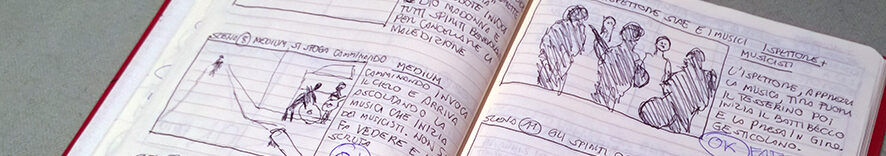 TUTTI SPIRITI
PER CANCELLARE LA
MALEDIZIONE
SCENO 8 MEDIUM SI SFOGA CAMMINANDO
MEDIUM
CAMMINANDO INVOCA
IL CIELO E ARRIVA
ASCOLTANDO LO
MUSICA CHE INIZIA
DEI MUSICISTI. NON
FA VEDERE E
SCRUTA
SUE E I MUSICI
ISPETTORE +
MUSICISTI
L'ISPETTORE, APPREZZA
LA MUSICA TIRA FUORI
IL TESSERINO POI
INIZIA IL BATTIBECCO
E LA PRESA IN GIRO.
GESTICOLANO.
OK
SCENO 11 GLI SPIRITI